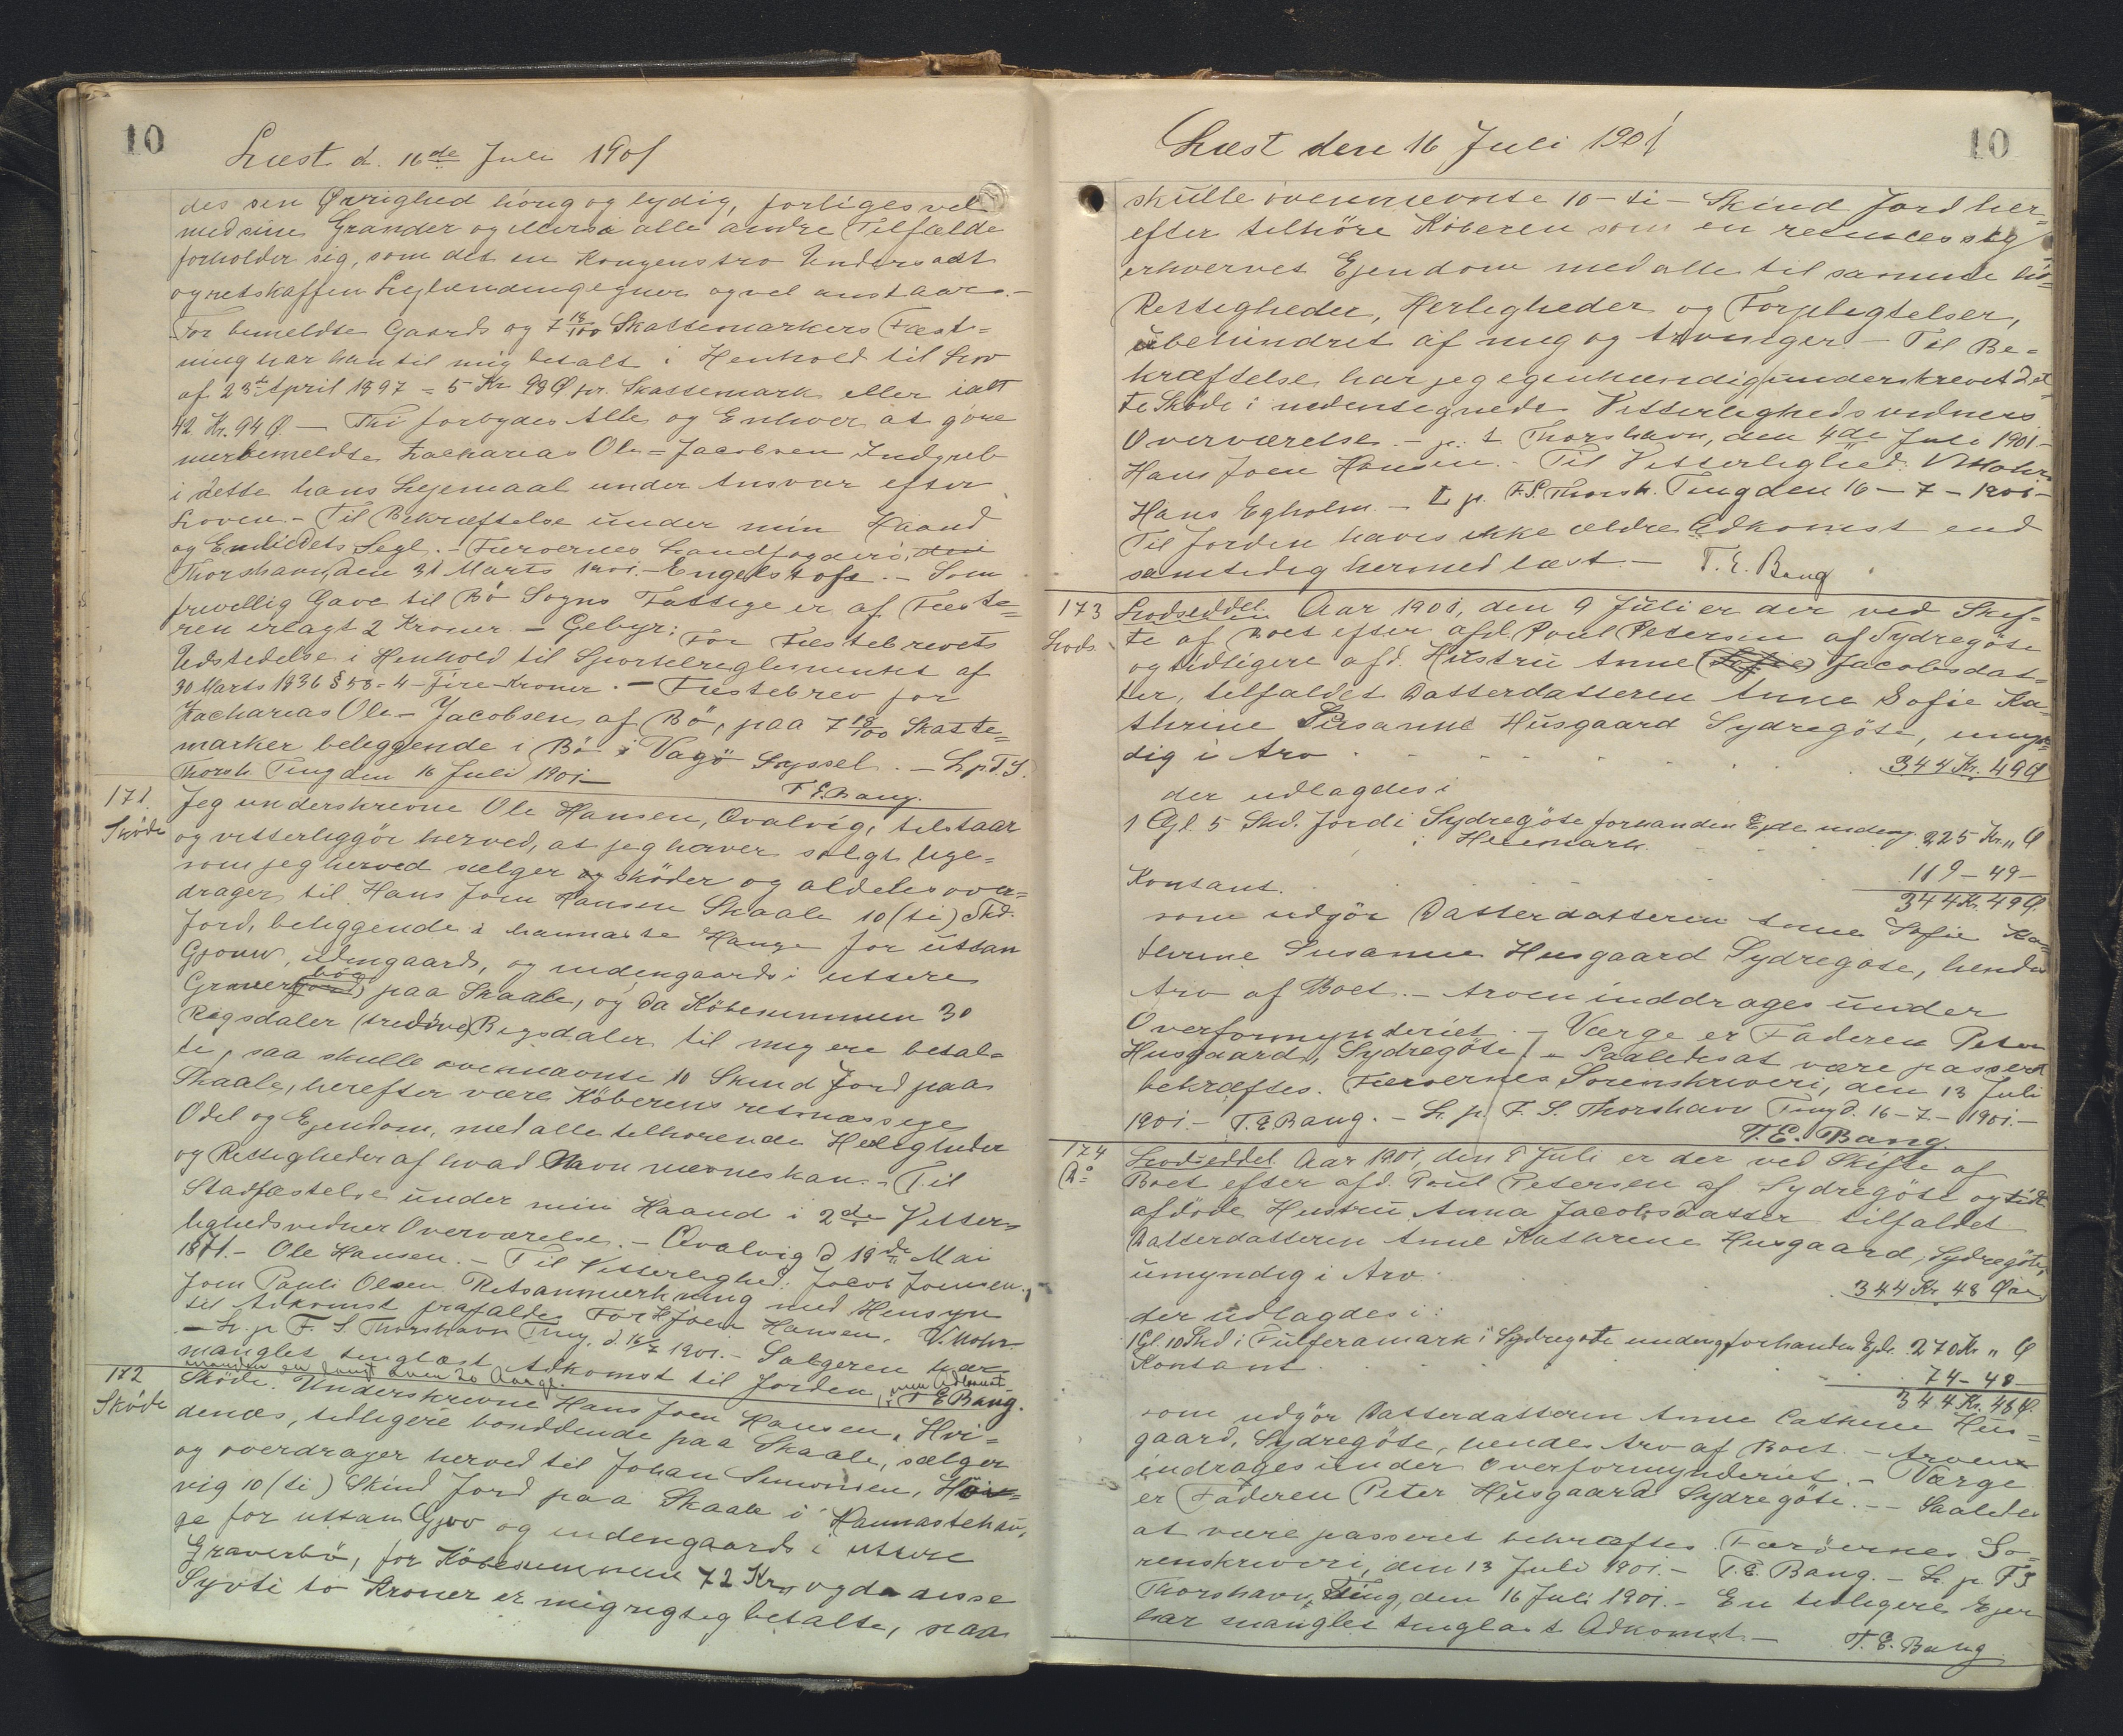 10
Læst d. 16de Juli 1901
des sin Øvrighed hörig og lydig, forliges vel
med sine Grander og ellers i alle andre Tilfælde
forholder sig, som det en Kongens tro Undersaat
og retskaffen Lejlænding egner og vel anstaar. -
For bemeldte Gaards og 7 18/100 Skattemarkers Fæst=
ning har han til mig betalt i Henhold til Lov
af 23de April 1897 = 5 Kr 98 Ø pr. Skattemark eller ialt
42 Kr. 94 Ø. - Thi forbydes Alle og Enhver at göre
merbemeldte Zacharias Ole = Jacobsen Indgreb
i dette hans Lejemaal under Ansvar efter
Loven. - Til Bekræftelse under min Haand
og Embedets Segl. - Færoernes Landfogderi,
Thorshavn, den 31 Marts 1901. - Engelstoft. - Som
frivillig Gave til Bö Sogns Fattige er af Fæste=
ren erlagt 2 Kroner. - Gebyr: For Fæstebrevets
Udstedelse i Henhold til Sportelreglementet af
30 Marts 1836 § 58 = 4 - fire Kroner. - Fæstebrev for
Zacharias Ole - Jacobsen af Bö, paa 7 18/100 Skatte=
marker beliggende i Bö i Vagö Syssel. - L. p. F. S.
Thorsh. Ting den 16 Juli 1901 -
T. E. Bang.
171.
Sköde
Jeg underskrevne Ole Hansen, Qvalvig, tilstaar
og vitterliggör herved, at jeg haver solgt lige=
som jeg herved sælger og sköder og aldeles over=
drager til Hans Joen Hansen Skaale 10 (ti) Skd.
Jord, beliggende i hannaste Hauge for uttan
Gjouv, udengaards, og indengaards i uttere
Graver bög paa Skaale, og da Köbesummen 30
Rigsdaler (tredive) Rigsdaler til mig ere betal=
te, saa skulle ovennævnte 10 Skind Jord paa
Skaale, herefter være Köberens retmæssige
Odel og Ejendom, med alle tilhorende Herligheder
og Rettigheder af hvad Navn nævnes kan. - Til
Stadfæstelse under min Haand i 2de Vitter=
lighedsvidner Overværelse. - Qvalvig d 18de Mai
1871. - Ole Hansen. - Til Vitterlighed: Jacob Joensen.,
Joen Pauli Olsen Retsanmerkning med Hensyn
til Adkomst frafaldes For H Joen Hansen. V. Mohr
- L. p F. S. Thorshavn Ting. d. 16/7 1901. - Sælgeren har
manglet tinglæst Adkomst til Jorden, men Adkomst
manden er langt over 20 Aar gl. T E Bang.
172
Sköde
Sköde. Underskrevne Hans Joen Hansen, Hvi=
denæs, tidligere boniddende paa Skaale, sælger
og overdrager herved til Johan Simonsen, Hoi=
vig 10 (ti) Skind Jord paa Skaale i Hannastehau,
ge for uttan Gjov og indengaards i uttere
Graverbö, for Köbesummen 72 Kr, og da disse
Syvti to Kroner er mig rigtig betalte, saa
10
Læst den 16 Juli 1901
skulle ovennævnte 10 - ti - Skind Jord her=
efter tilhöre Köberen som en retmæssig
erhvervet Ejendom med alle til samme hö=
Rettigheder, Herligheder og Forpligtelser,
ubehindret af mig og Arvinger. - Til Be=
kræftelse har jeg egenhændig underskrevet det
te Sköde i nedentegnede Vitterlighedsvidners
Overværelse. - p. t Thorshavn, den 4de Juli 1901 -
Hans Joen Hansen. - Til Vitterlighed: V Mohr.
Hans Egholm. - L p. F. S. Thorsh. Ting den 16 - 7 - 1901 -
Til Jorden haves ikke ældre Adkomst end
samtidig hermed læst - T. E. Bang
173
Lods.
Lodseddel. Aar 1901, den 9 Juli er der ved Skif=
te af Boet efter afd. Poul Petersen af Sydregöte
og tidligere afd. Hustru Anne (Sofie) Jacobsdat=
ter, tilfaldet Datterdatteren Anne Sofie Ka=
thrine Susanne Husgaard Sydregöte, umyn=
dig i Arv . . . . . . 344 Kr. 49 Ø
der udlagdes i
1 Gl. 5 Skd. Jord i Sydregöte forhanden Ejde undeng. 225 Kr. " Ø
i Heimark.
Kontant. 119 - 49 -
344 Kr. 49 Ø.
som udgör Datterdatteren Anne Sofie Ka=
thrine Susanne Husgaard Sydregöte, hendes
Arv af Boet. - Arven inddrages under
Overformynderiet. - Værge er Faderen Peter
Husgaard, Sydregöte. - Saaledes at være passeret
bekræftes. Færoernes Sorenskriveri, den 13 Juli
1901. - T. E Bang. - L. p. F. S. Thorshavn Ting d. 16 - 7 - 1901. -
T. E. Bang
174
Do
Lodseddel. Aar 1901, den 9 Juli er der ved Skifte af
Boet efter afd. Poul Petersen af Sydregöte og tidl
afdöde Hustru Anna Jacobsdatter tilfaldet
Datterdatteren Anne Kathrine Husgaard, Sydregöte,
umyndig i Arv . 344 Kr 48 Øre
der udlagdes i:
1 Gl. 10 Skd i Fulferamark i Sydregöte undeng forhanden Ejde. 270 Kr " Ø
Kontant . . . 74 - 48 -
344 Kr. 48 Ø.
som udgör Datterdatteren Anne Cathrine Hus=
gaard, Sydregöte, hendes Arv af Boet. - Arven
inddrages under Overformynderiet. - Værge
er Faderen Peter Husgaard Sydregöte. - - Saaledes
at være passeret bekræftes. Færöernes So=
renskriveri, den 13 Juli 1901. - T. E. Bang. - L. p. F S
Thorshavn, Ting, den 16 Juli 1901. - En tidligere Ejer
har manglet tinglæst Adkomst. -
T. E. Bang